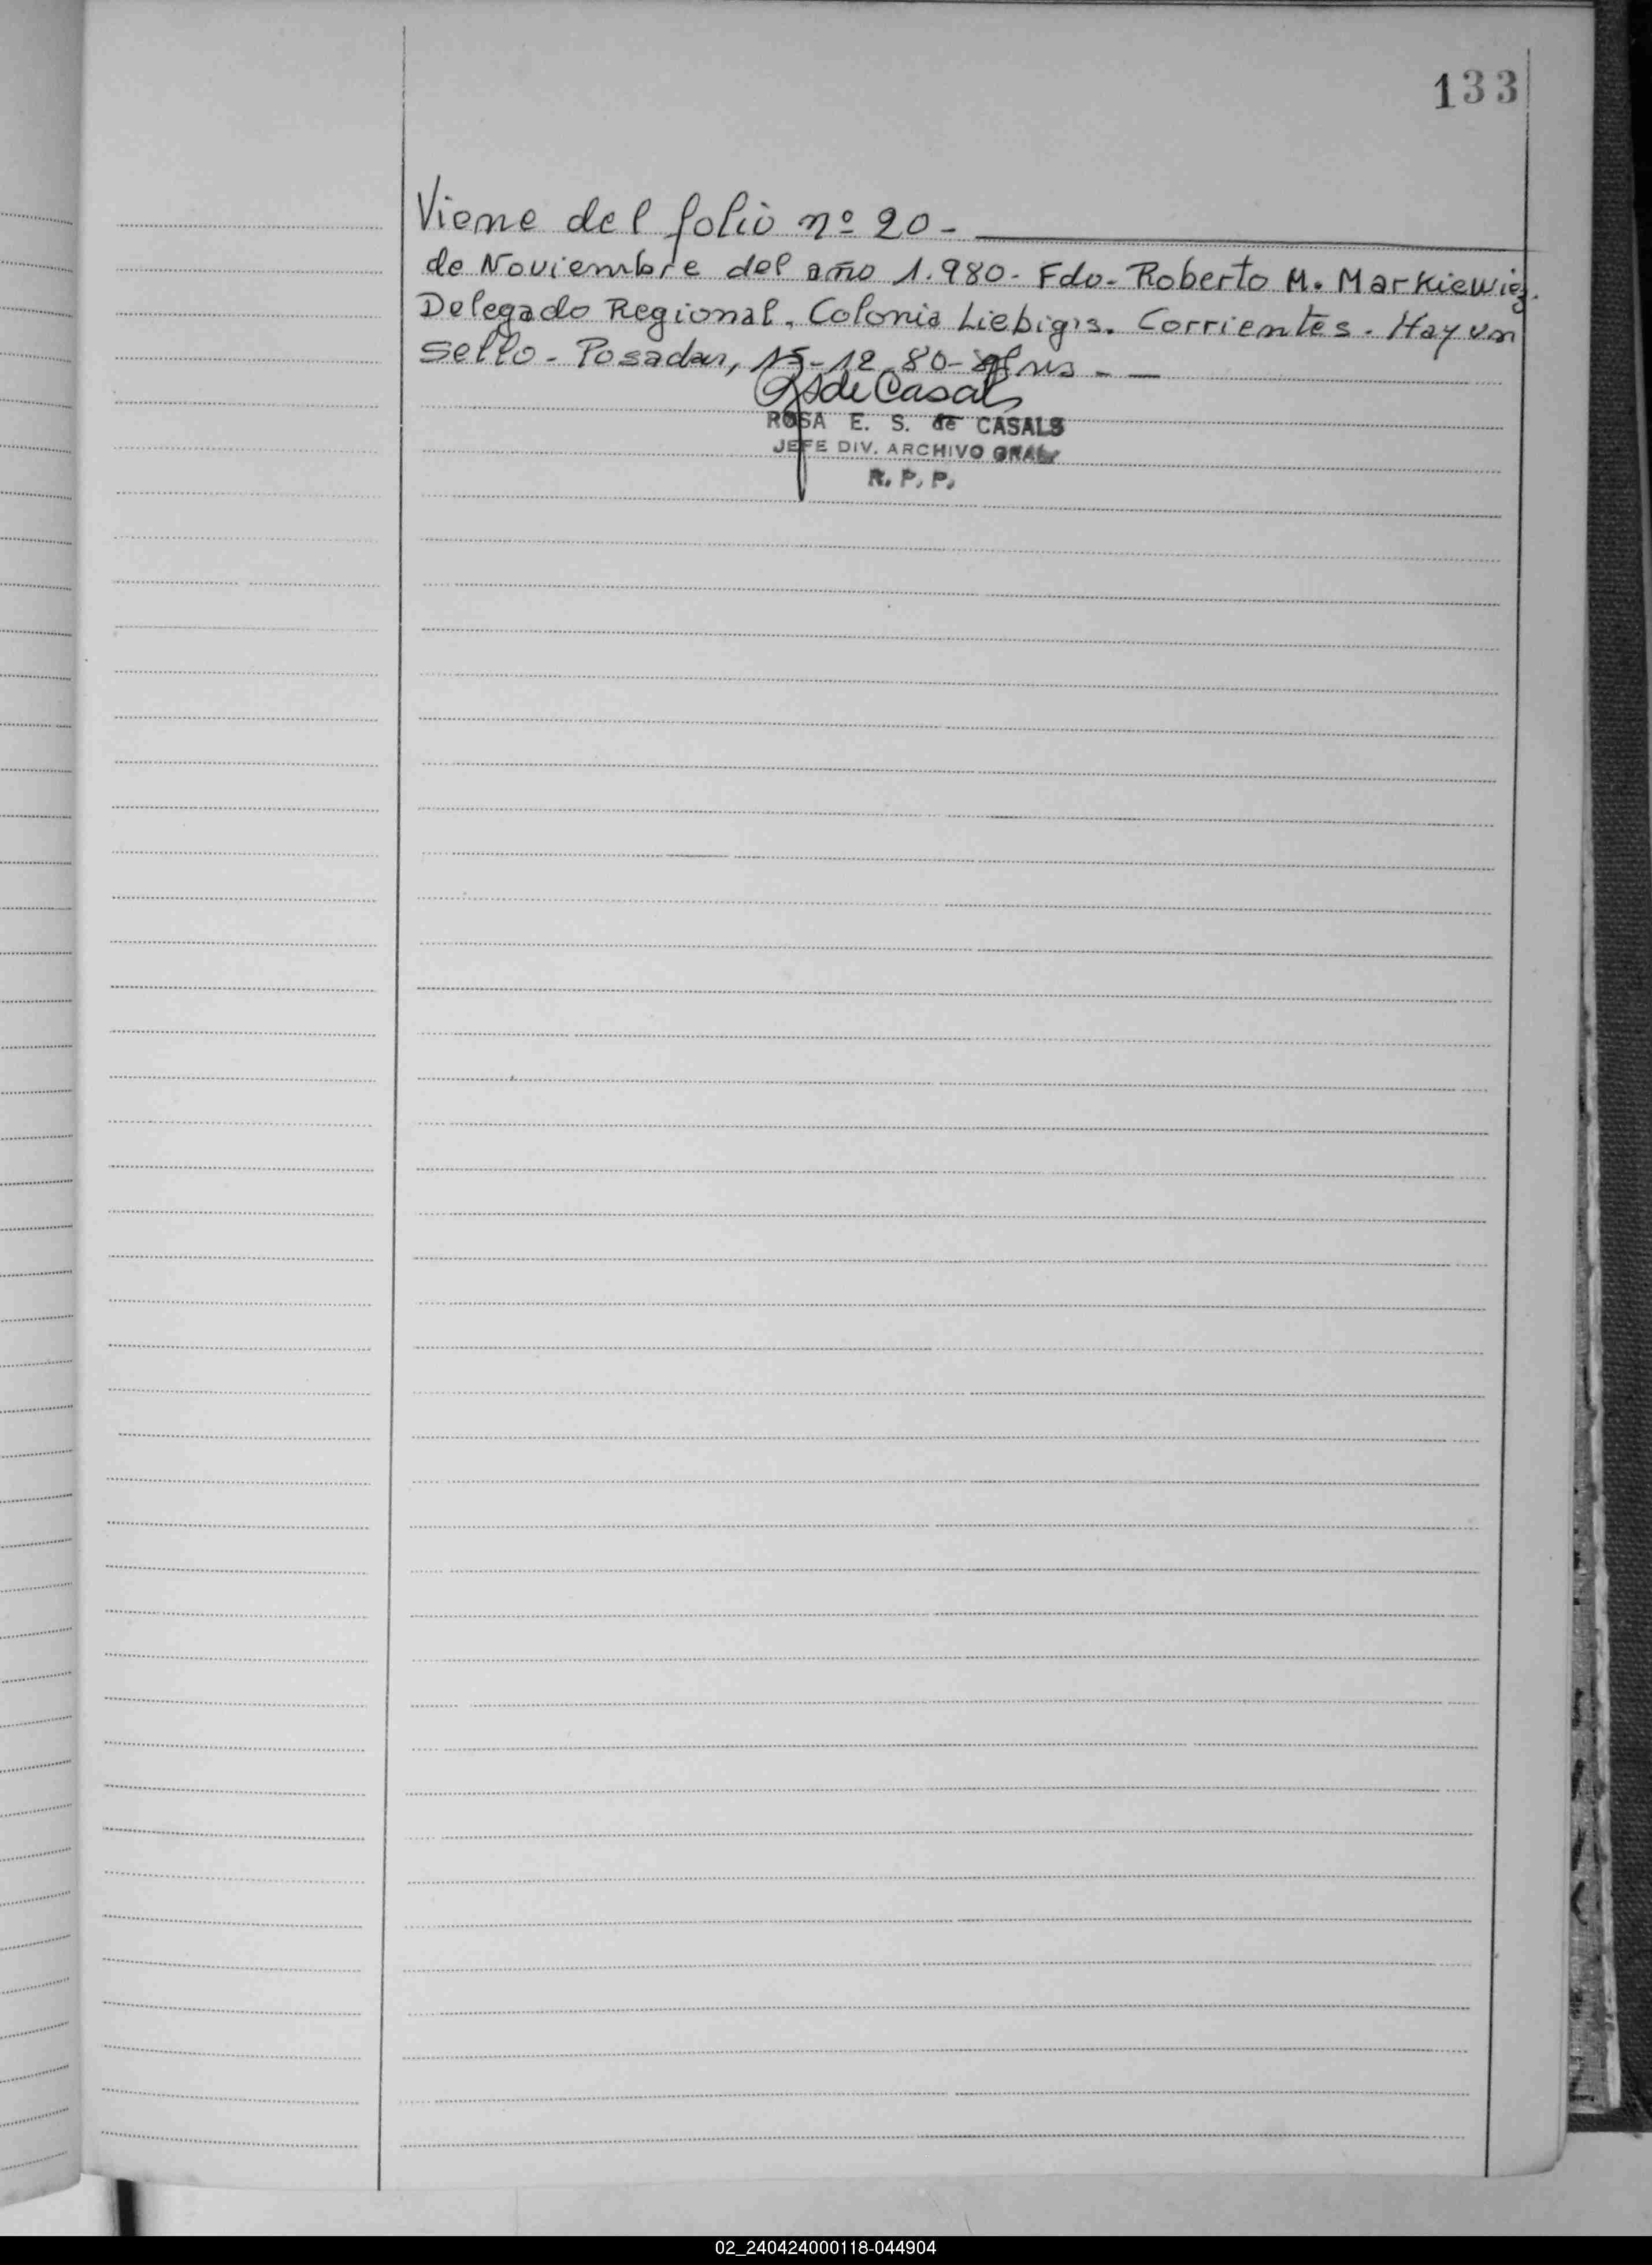 133
Viene del folio nº 20-
de Noviembre del año 1.980- Fdo- Roberto M. Markiewiez.
Delegado Regional. Colonia Liebigis. Corrientes. Hay un
Sello- Posadas, 15-12-80-
de Casals
ROSA E. S. de CASALS
JEFE DIV. ARCHIVO GRAL.
R. P. P.
02_240424000118-044904